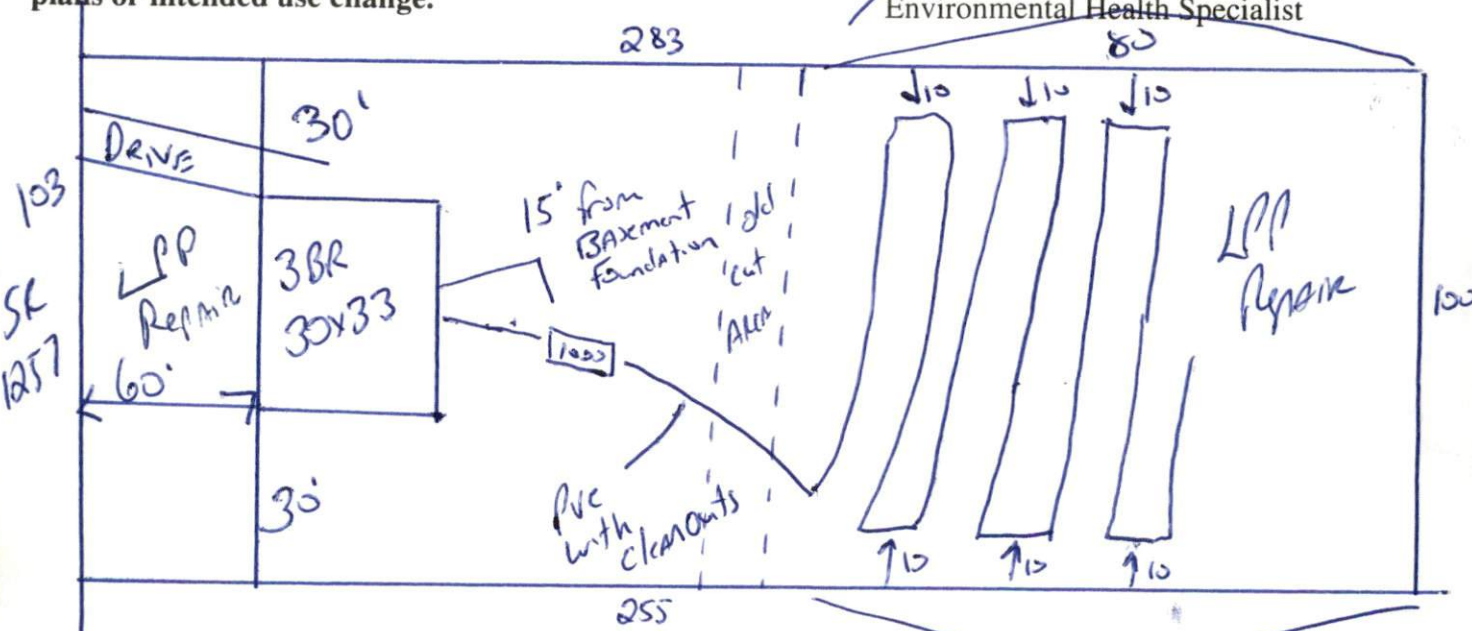 plans or intended use change.
Environmental Health Specialist
283
80
30'
DRIVE
103
SR
1257
LPP
Repair
60'
3BR
30x33
30'
15' from
BASEMENT
foundation
old
cut
AREA
1000
PVC
with
cleanouts
10
10
10
10
10
10
LPP
Repair
100
255